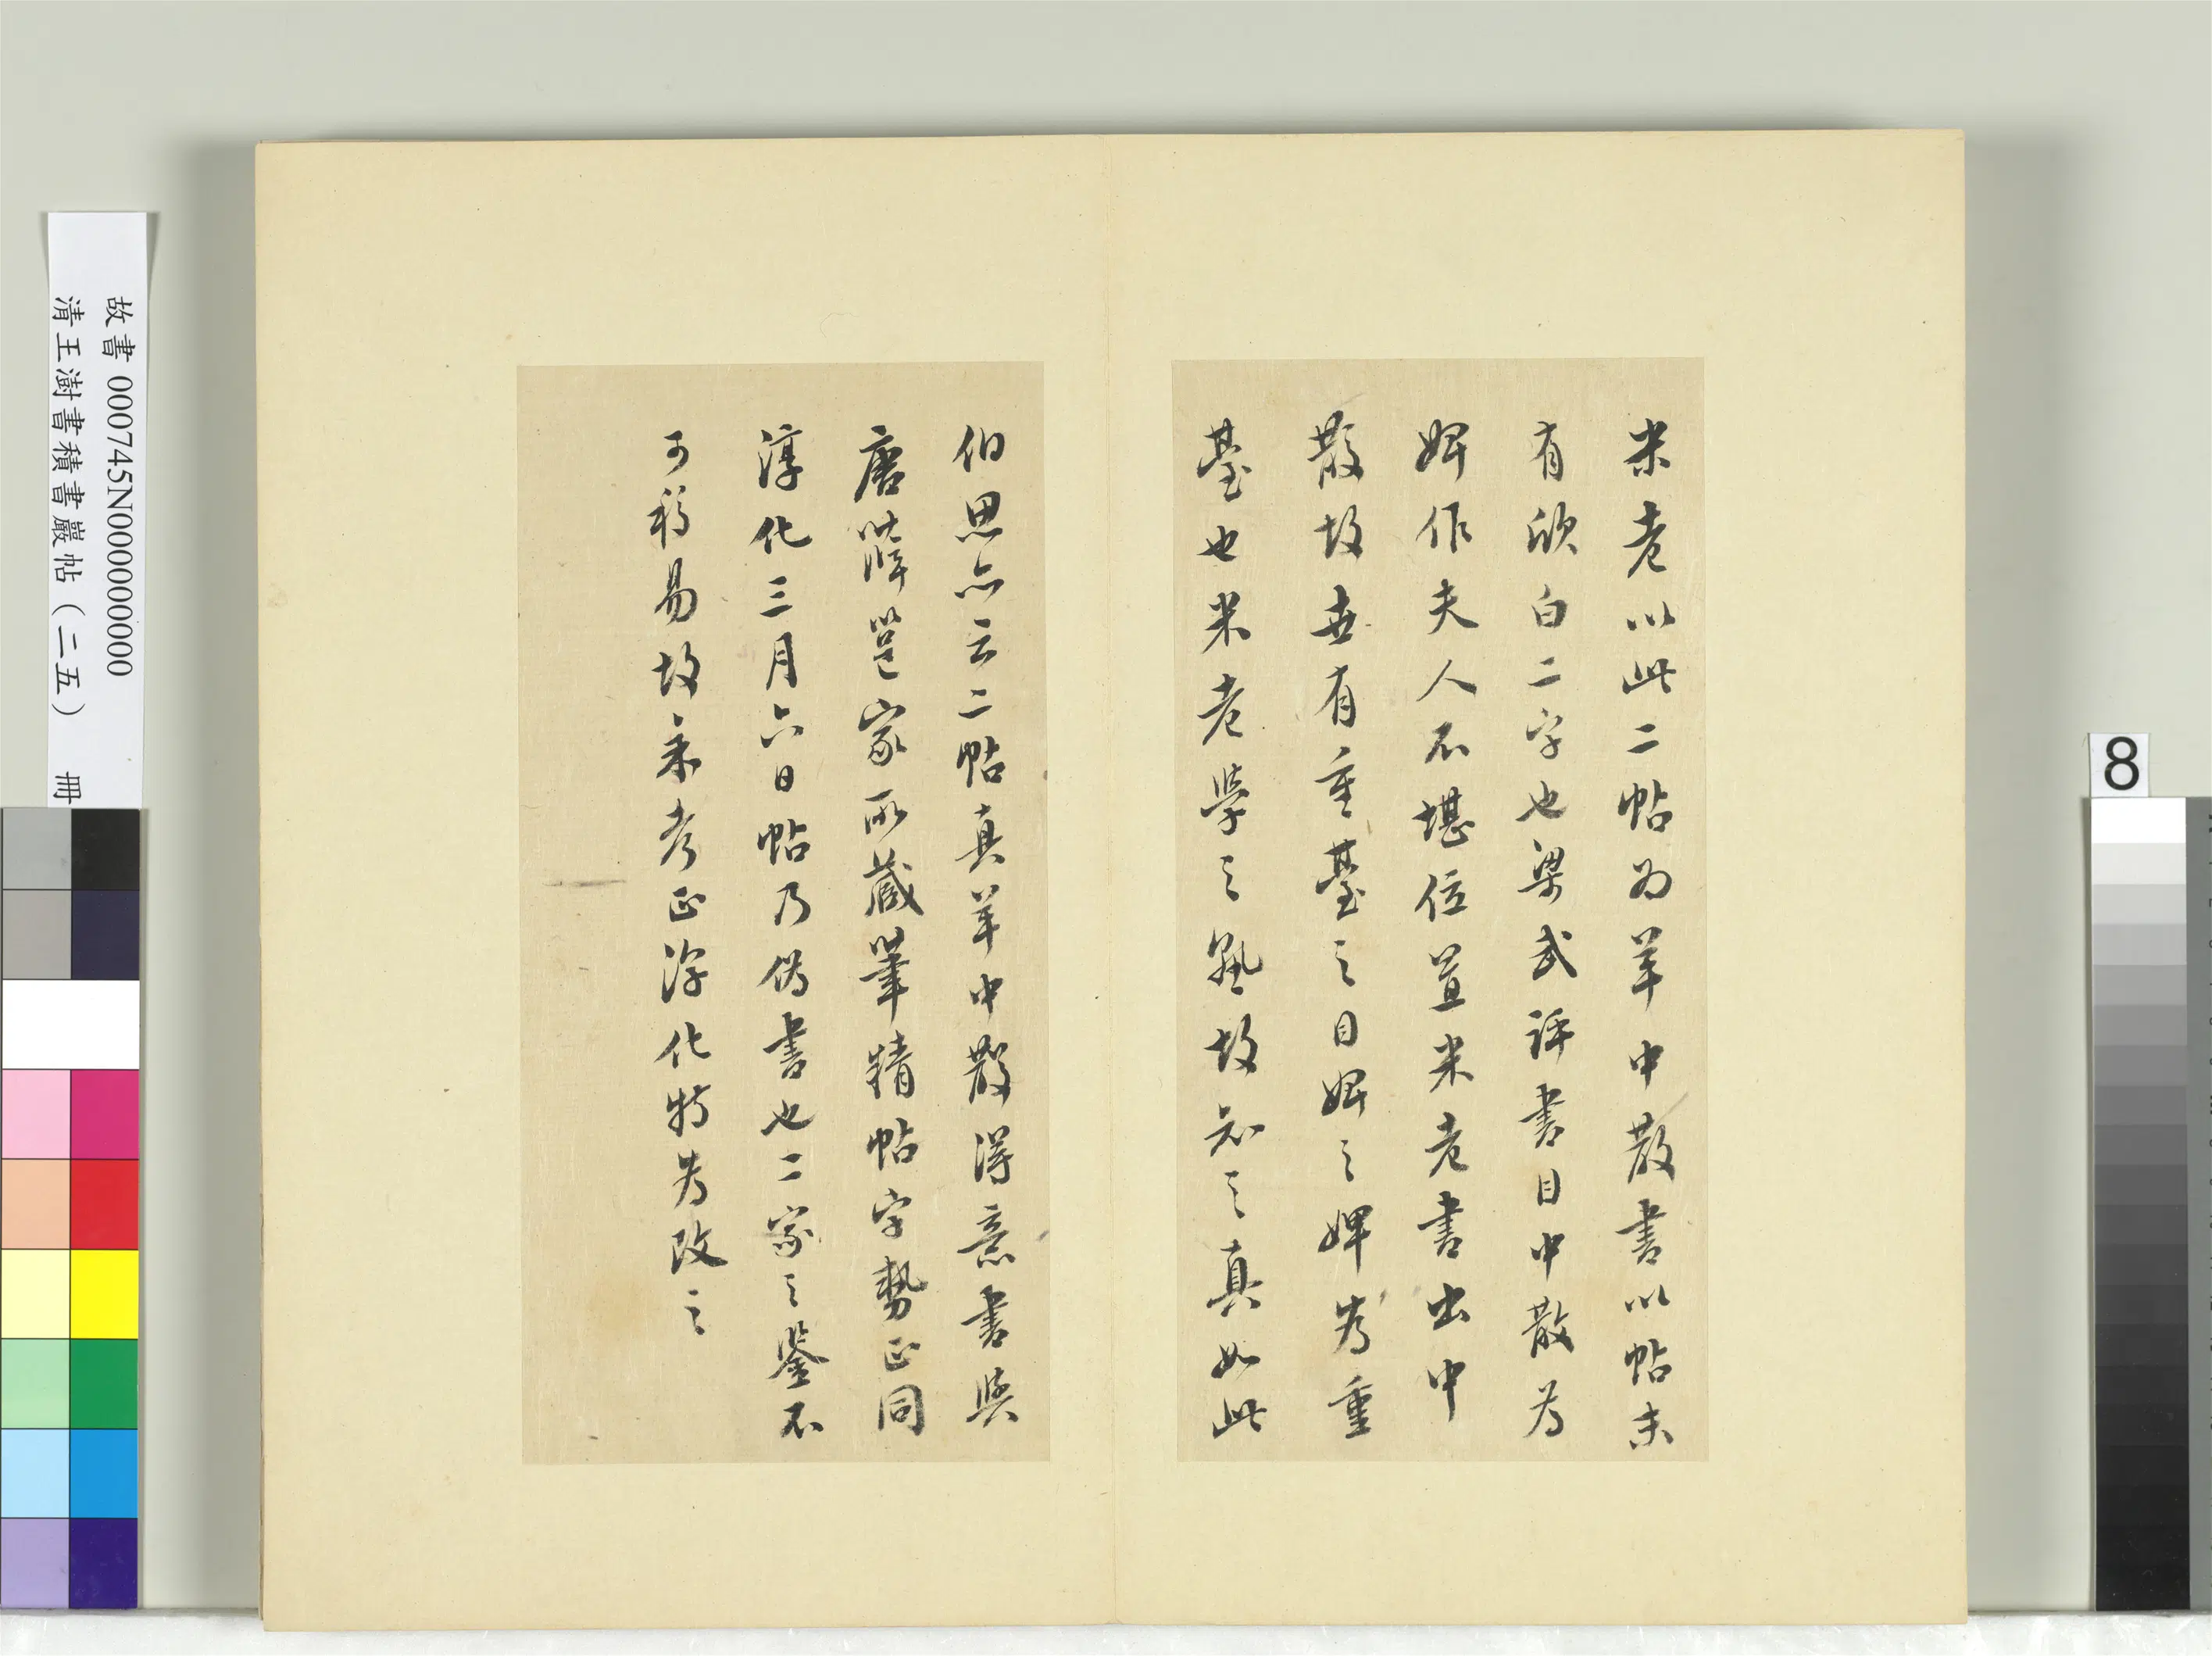 米老以此二帖為羊中散書以帖末
有欣白二字也梁武評書目中散為
婢作夫人不堪位置米老書出中
散故世有重臺之目婢之婢為重
臺也米老學之熟故知之真如此
伯思亦云二帖真羊中散得意書與
唐薛邕家所藏筆精帖字勢正同
淳化三月六日帖乃偽書也二家之鑒不
可移易故余考正淳化特為改之
故書 000745N000000000
清王澍書積書巖帖(二五) 冊
8